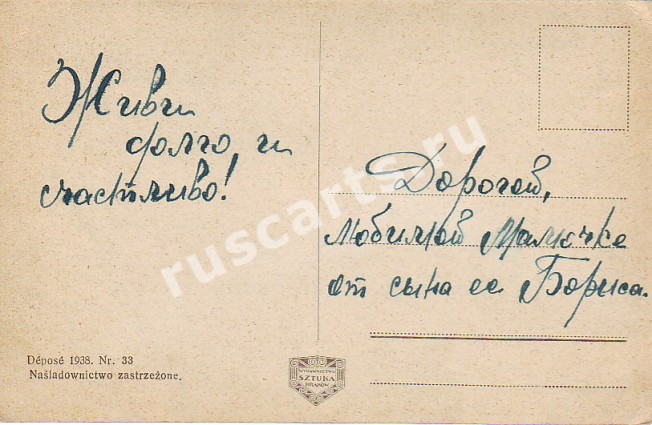 Живи
долго, и
счастливо!
Дорогой,
любимой Мамочке
от сына ее Бориса.
Déposé 1938. Nr. 33
Naśladownictwo zastrzeżone.
WYDAWNICTWO
SZTUKA
KRAKÓW
ruscarts.ru